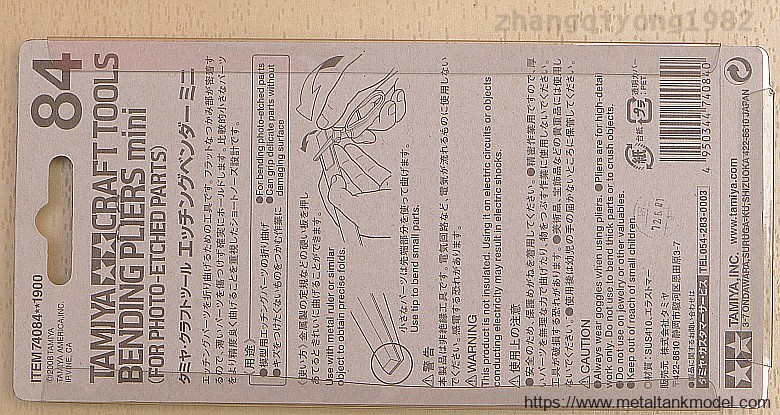 zhangqiyong1982
84
ITEM 74084**1900
©2008 TAMIYA
TAMIYA AMERICA, INC.
IRVINE, CA
TAMIYA CRAFT TOOLS
BENDING PLIERS mini
(FOR PHOTO-ETCHED PARTS)
タミヤ・クラフトツール エッチングベンダー ミニ
エッチングパーツを折り曲げるための工具です。フラットなつかみ部が密着す
るので、薄いパーツを傷つけず確実にホールドします。比較的小さなパーツ
をより精度良く曲げることを重視したショートノーズ設計です。
《用途》
●模型用エッチングパーツの折り曲げ
●キズをつけたくないものをつかむ作業に
●For bending photo-etched parts
●Can grip delicate parts without
damaging surface
《使い方》金属製の定規などの硬い板を押し
あてるときれいに曲げることができます。
Use with metal ruler or similar
object to obtain precise folds.
小さなパーツは先端部分を使って曲げます。
Use tip to bend small parts.
⚠警告
本製品は非絶縁工具です。電気回路など、電気が流れるものに使用しない
でください。感電する恐れがあります。
⚠WARNING
This product is not insulated. Using it on electric circuits or objects
conducting electricity may result in electric shocks.
⚠使用上の注意
●安全のため、保護めがねを着用してください。●精密作業用ですので、厚
いパーツを無理な力で曲げたり、物をつぶす作業に使用しないでください。
工具が破損する恐れがあります。●美術品、宝飾品などの貴重品には使用し
ないでください。●使用後は幼児の手の届かないところに保管してください。
⚠CAUTION
●Always wear goggles when using pliers. ●Pliers are for high-detail
work only. Do not use to bend thick parts or to crush objects.
●Do not use on jewelry or other valuables.
●Keep out of reach of small children.
○材質/SUS410、エラストマー
販売元 株式会社タミヤ
〒422-8610 静岡市駿河区恩田原3-7
●製品に関するお問い合わせは
タミヤ・カスタマーサービス TEL054-283-0003
紙
台紙
プラ
透明カバー
:PET
4 950344 740840
TAMIYA
TAMIYA, INC. www.tamiya.com
3-7 ONDAWARA, SURUGA-KU, SHIZUOKA 422-8610 JAPAN
https://www.metaltankmodel.com